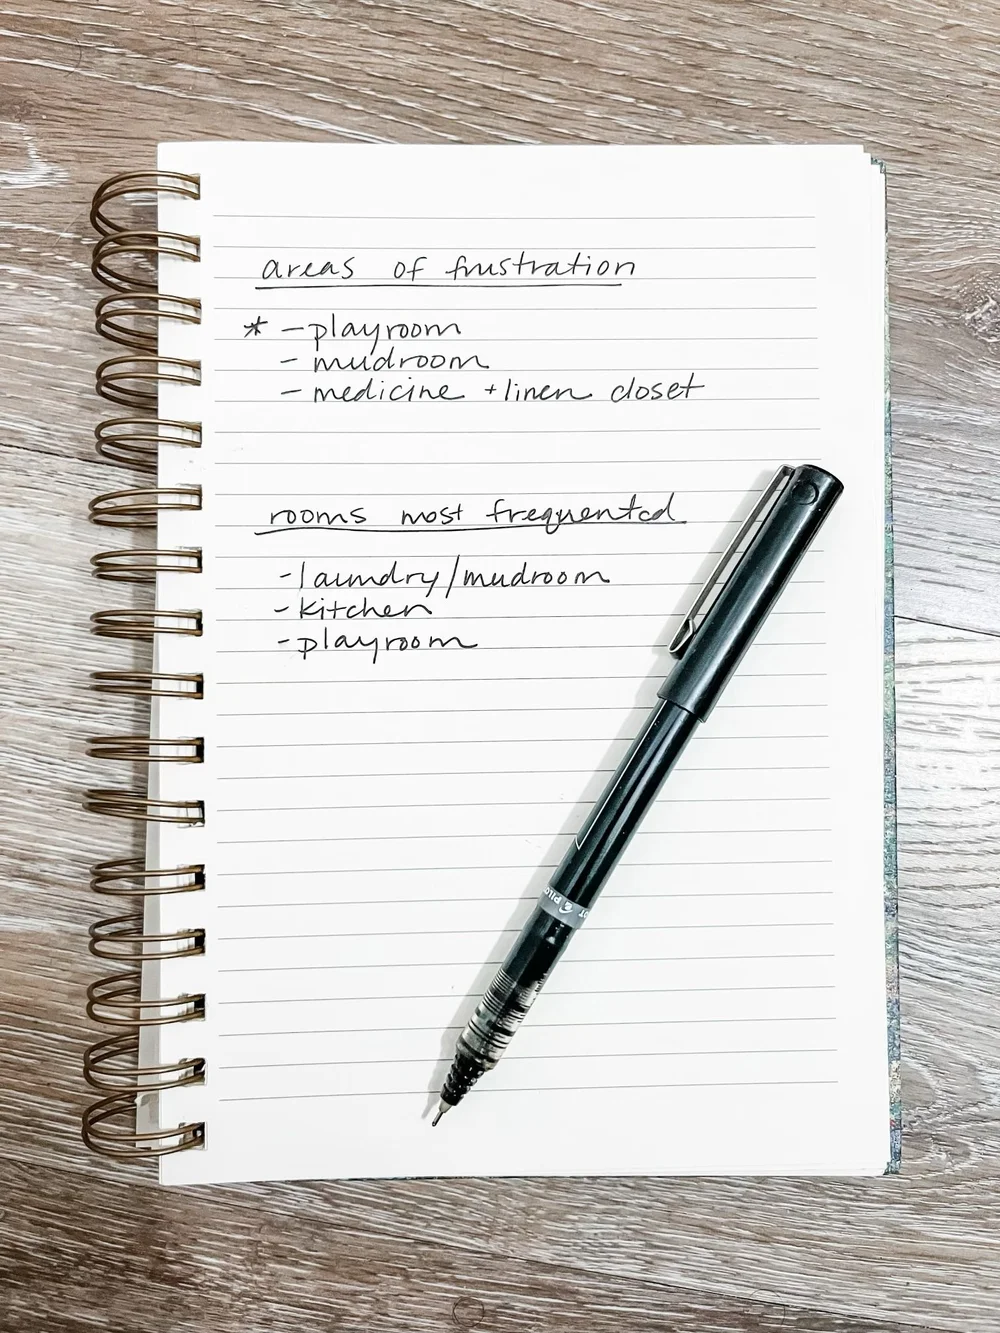 areas of frustration
* - playroom
- mudroom
- medicine + linen closet
rooms most frequented
- laundry/mudroom
- kitchen
- playroom
PILOT